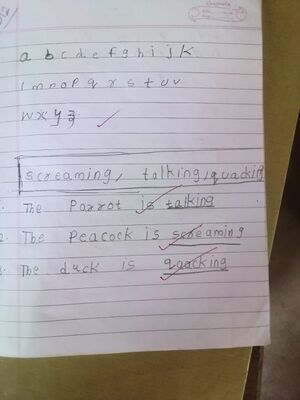 a b c d e f g h i j k
l m n o p q r s t u v
w x y z
screaming, talking, quacking
The Parrot is talking
2. The Peacock is screaming
The duck is quacking